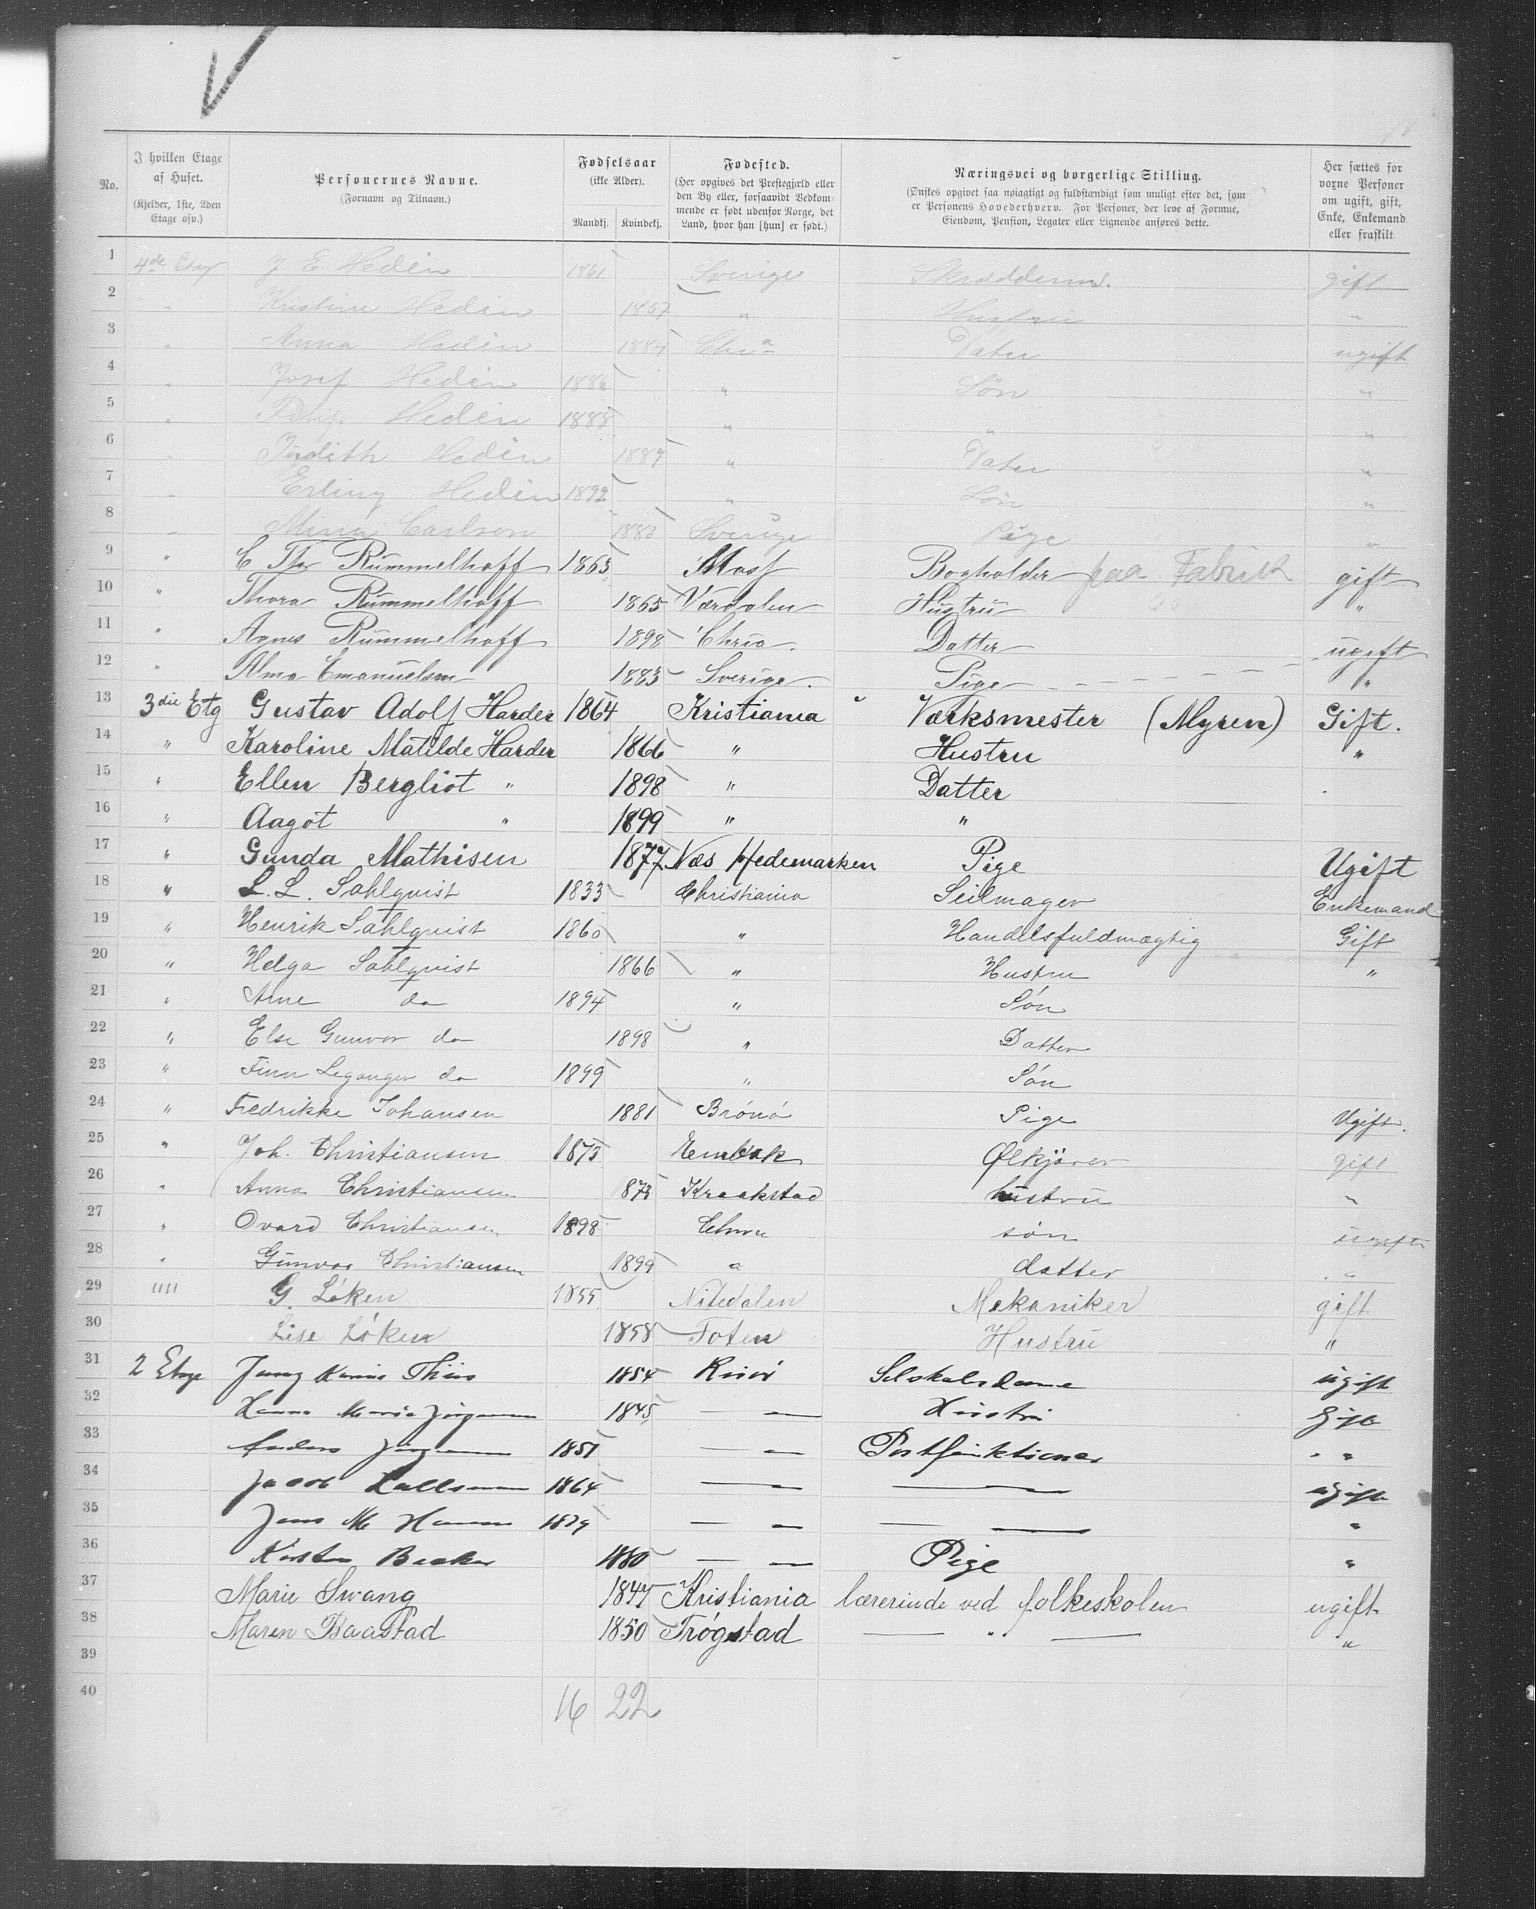 No.
I hvilken Etage af Huset. (Kjelder, 1ste, 2den Etage osv.)
Personernes Navne. (Fornavn og Tilnavn.)
Fødselsaar (ikke Alder). Mandkj. Kvindekj.
Fødested. (Her opgives det Prestegjæld eller den By eller, forsaavidt Vedkommende er født udenfor Norge, det Land, hvor han [hun] er født.)
Næringsvei og borgerlige Stilling. (Ønskes opgivet saa nøiagtigt og fuldstændigt som muligt efter det, som er Personens Hovederhverv. For Personer, der leve af Formue, Eiendom, Pension, Legater eller Lignende anføres dette.
Her sættes for voxne Personer om ugift, gift, Enke, Enkemand eller fraskilt
1 4de Etag J. E. Hedèn 1861 Sverige gift
2 " Kristine Hedèn 1857 " Hustru "
3 " Anna Hedèn 1884 Chra Dater ugift
4 " Josef Hedèn 1886 " Søn "
5 " Hedèn 1888 " " "
6 " Judith Hedèn 1889 " Dater "
7 " Erling Hedèn 1892 " Søn "
8 " Mina Carlson 1882 Sverige Pige "
9 " C. Thr Rummelhoff 1863 Moss Bogholder paa Fabrik gift
10 " Thora Rummelhoff 1865 Værdalen Hustru "
11 " Agnes Rummelhoff 1898 Chria. Datter ugift
12 " Alma Emanuelsen 1883 Sverige. Pige "
13 3die Etg Gustav Adolf Harder 1864 Kristiania " Værksmester (Myren) Gift.
14 " Karoline Matilde Harder 1866 " Hustru "
15 " Ellen Bergliot " 1898 " Datter
16 " Aagot " 1899 " "
17 " Gunda Mathisen 1877 Næs Hedemarken Pige Ugift
18 " L. L. Sahlqvist 1833 Christiania Seilmager Enkemand
19 " Henrik Sahlqvist 1860 " Handelsfuldmægtig Gift
20 " Helga Sahlqvist 1866 " Hustru "
21 " Arne do 1894 " Søn
22 " Else Gunvor do 1898 " Datter
23 " Finn Leganger do 1899 " Søn
24 " Fredrikke Johansen 1881 Brönö Pige Ugift.
25 " Joh. Christiansen 1873 Enebak Ølkjører gift
26 " Anna Christiansen 873 Kraakstad hustru "
27 " Ovard Christiansen 1898 Chria søn ugift
28 " Gunvor Christiansen 1899 " datter "
29 "" G. Löken 1855 Nitedalen Mekaniker gift
30 Lise Löken 1858 Toten Hustru "
31 2 Etage 1854 Selskabsdame ugift
32 1845 — — Hustru Gift
33 Anders 1851 — — Postfunktionær "
34 Jacob 1864 — — — — ugift
35 Jens M 1879 — — — — "
36 1880 — — Pige "
37 Marie Swang 1847 Kristiania lærerinde ved folkeskolen ugift
38 Maren Baastad 1850 Trøgstad — " — "
39
40
16 22